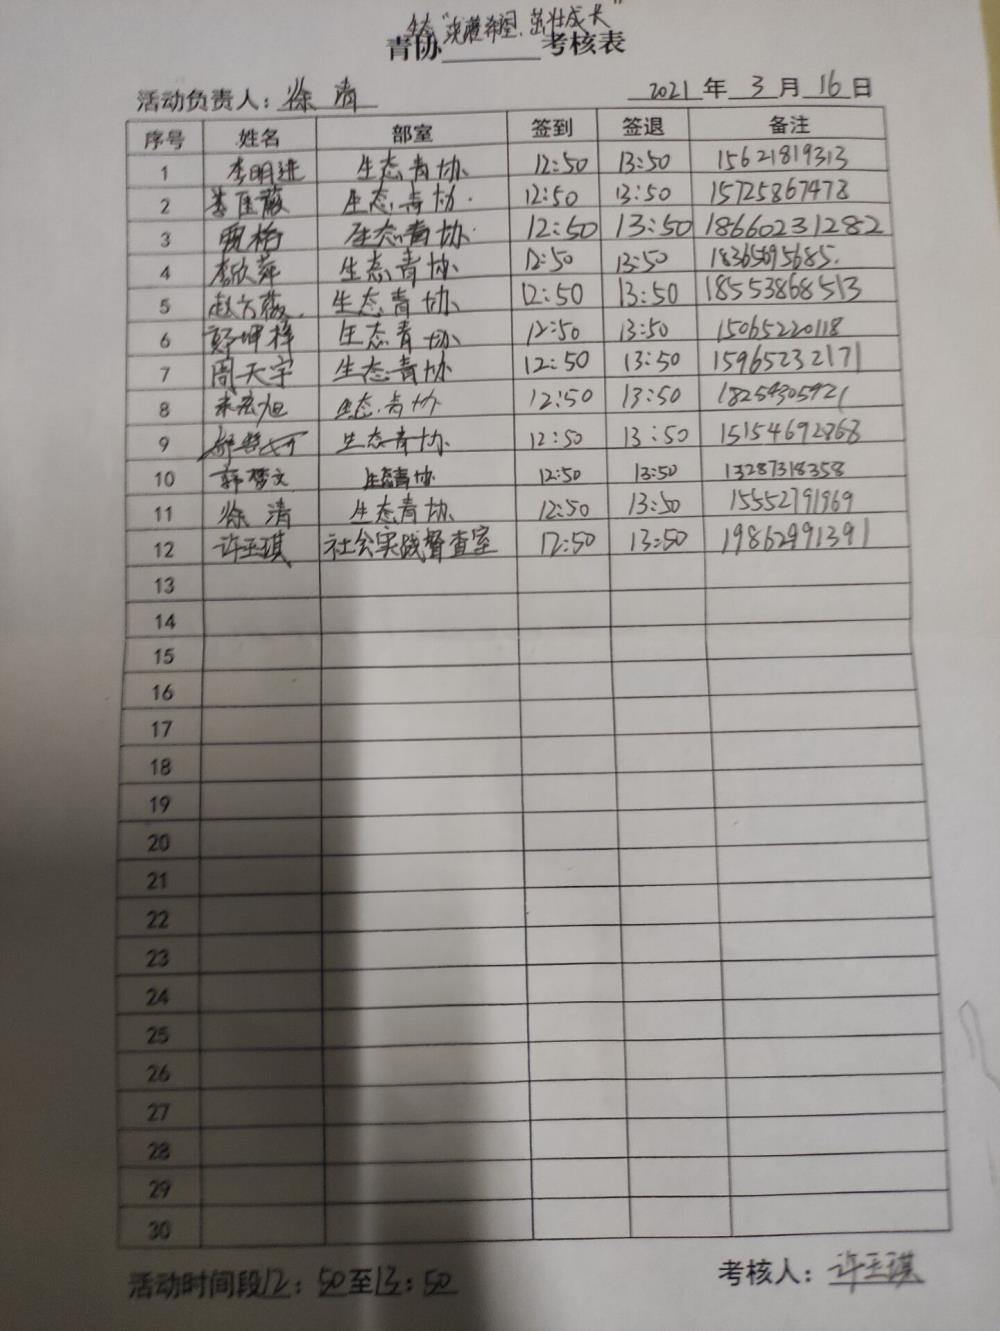 生态"浇灌希望,茁壮成长"
青协 考核表
活动负责人: 徐清 2021年3月16日
序号 姓名 部室 签到 签退 备注
1 李明进 生态青协 12:50 13:50 15621819313
2 生态青协. 12:50 13:50 15725867473
3 生态青协. 12:50 13:50 18660231282
4 李欣萍 生态青协 12:50 13:50 18365695685.
5 生态青协 12:50 13:50 18553868513
6 生态青协 12:50 13:50 15065220118
7 周天宇 生态青协 12:50 13:50 15965232171
8 宋宏旭 生态青协 12:50 13:50
9 生态青协. 12:50 13:50 15154692868
10 韩梦文 生态青协 12:50 13:50 13287318358
11 徐清 生态青协 12:50 13:50 15552791969
12 许玉琪 社会实践督查室 12:50 13:50 19862991391
13
14
15
16
17
18
19
20
21
22
23
24
25
26
27
28
29
30
活动时间段12:50至13:50 考核人: 许玉琪